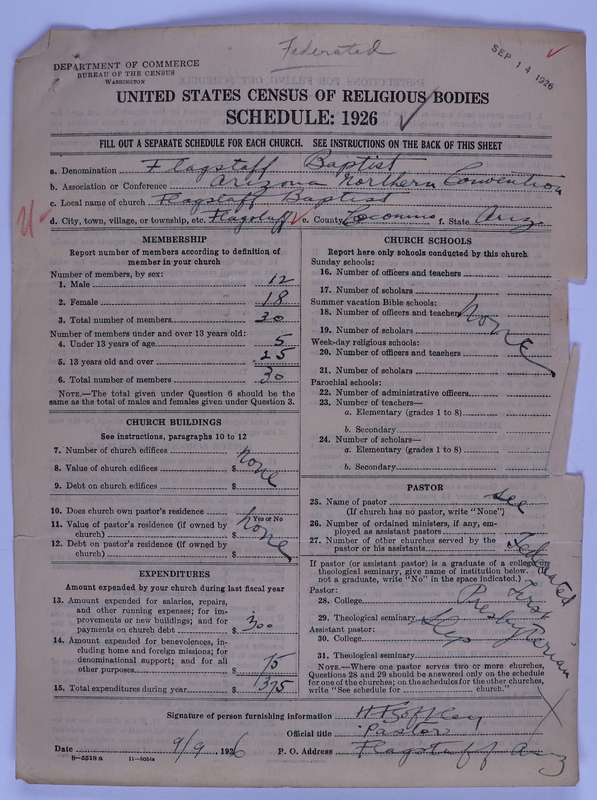 Federated
SEP 14 1926
DEPARTMENT OF COMMERCE
BUREAU OF THE CENSUS
WASHINGTON
UNITED STATES CENSUS OF RELIGIOUS BODIES
SCHEDULE: 1926
FILL OUT A SEPARATE SCHEDULE FOR EACH CHURCH. SEE INSTRUCTIONS ON THE BACK OF THIS SHEET
a. Denomination Flagstaff Baptist
b. Association or Conference Arizona Northern Convention
c. Local name of church Flagstaff Baptist
d. City, town, village, or township, etc. Flagstaff e. County Coconino f. State Ariz
MEMBERSHIP
Report number of members according to definition of
member in your church
Number of members, by sex:
1. Male 12
2. Female 18
3. Total number of members 30
Number of members under and over 13 years old:
4. Under 13 years of age 5
5. 13 years old and over 25
6. Total number of members 30
NOTE.—The total given under Question 6 should be
same as the total of males and females given under Question 3.
CHURCH BUILDINGS
See instructions, paragraphs 10 to 12
7. Number of church edifices
8. Value of church edifices $ none
9. Debt on church edifices $
10. Does church own pastor's residence
Yes or No
11. Value of pastor's residence (if owned by
church) $ none
12. Debt on pastor's residence (if owned by
church) $
EXPENDITURES
Amount expended by your church during last fiscal year
13. Amount expended for salaries, repairs,
and other running expenses; for im-
provements or new buildings; and for
payments on church debt $ 300
14. Amount expended for benevolences, in-
cluding home and foreign missions; for
denominational support; and for all
other purposes $ 75
15. Total expenditures during year $ 375
CHURCH SCHOOLS
Report here only schools conducted by this church
Sunday schools:
16. Number of officers and teachers
17. Number of scholars
Summer vacation Bible schools:
18. Number of officers and teachers
none
19. Number of scholars
Week-day religious schools:
20. Number of officers and teachers
21. Number of scholars
Parochial schools:
22. Number of administrative officers
23. Number of teachers—
a. Elementary (grades 1 to 8)
b. Secondary
24. Number of scholars—
a. Elementary (grades 1 to 8)
b. Secondary
PASTOR
25. Name of pastor see
(If church has no pastor, write "None")
26. Number of ordained ministers, if any, em-
ployed as assistant pastors
27. Number of other churches served by the
pastor or his assistants
Federated
If pastor (or assistant pastor) is a graduate of a college or
theological seminary, give name of institution below. (If
not a graduate, write "No" in the space indicated.)
First
Pastor:
28. College
Presbyterian
29. Theological seminary
Assistant pastor:
30. College
31. Theological seminary
NOTE.—Where one pastor serves two or more churches,
Questions 28 and 29 should be answered only on the schedule
for one of the churches; on the schedules for the other churches,
write "See schedule for church."
Signature of person furnishing information
Official title Pastor
Date 9/9, 1926 P. O. Address Flagstaff Ariz
8-5518 a 11-9054a